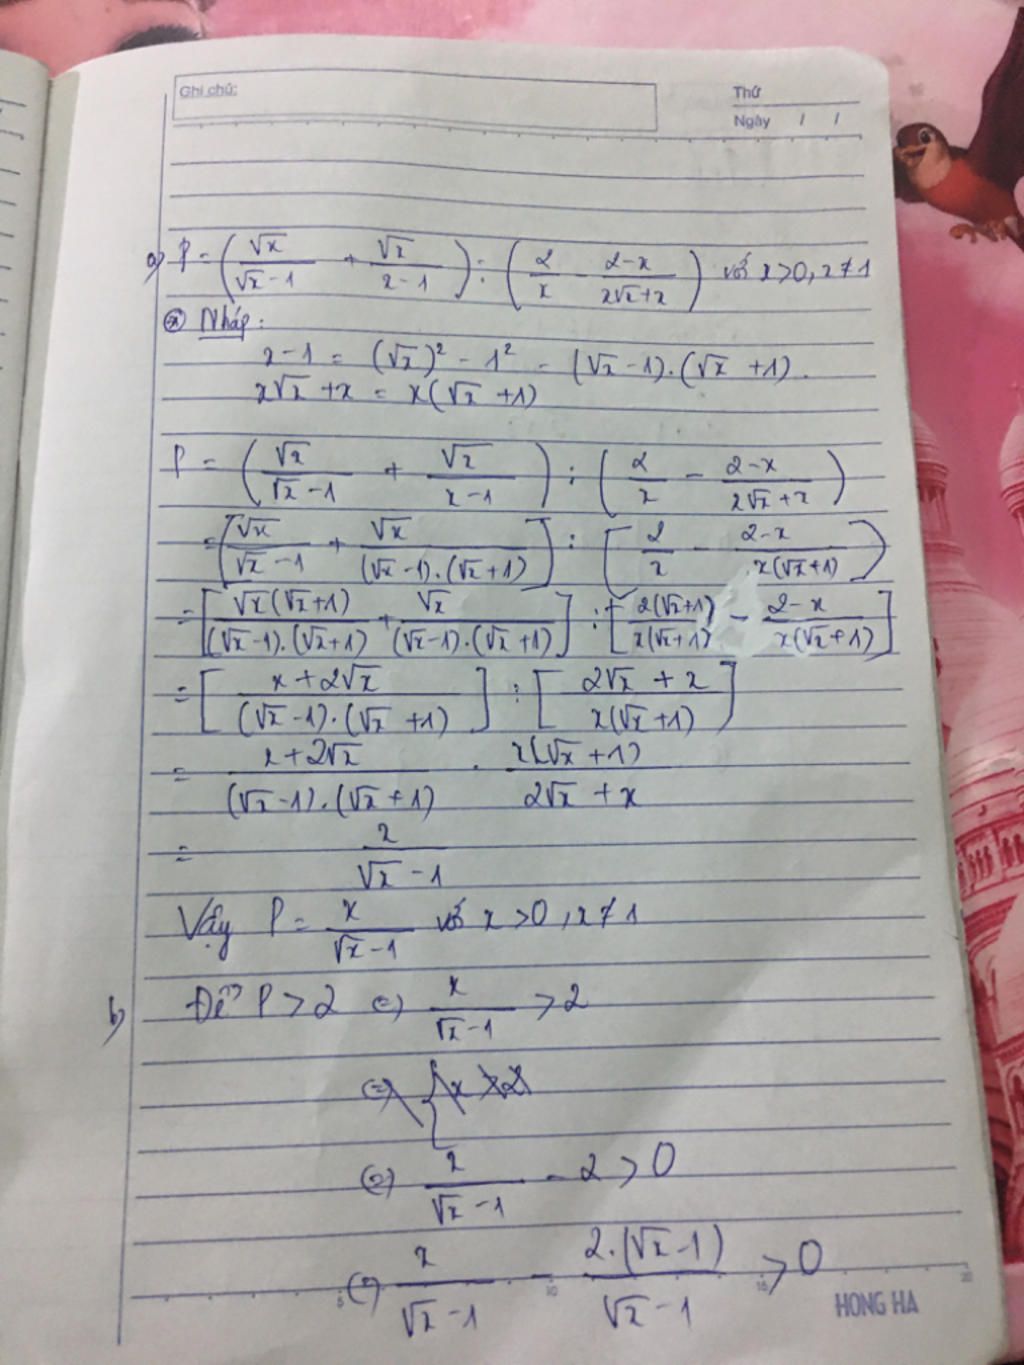 Ghi chú:
Thứ
Ngày / /
a) P = (√x/(√x - 1) + √x/(x - 1)) : (2/x - (2-x)/(x√x + x)) với x > 0, x ≠ 1
⊛ Nháp:
x - 1 = (√x)² - 1² = (√x - 1).(√x + 1).
x√x + x = x(√x + 1)
P = (√x/(√x - 1) + √x/(x - 1)) : (2/x - (2-x)/(x√x + x))
= [√x/(√x - 1) + √x/((√x - 1).(√x + 1))] : [2/x - (2-x)/(x(√x + 1)))
= [√x(√x + 1)/((√x - 1).(√x + 1)) + √x/((√x - 1).(√x + 1))] : [2(√x + 1)/(x(√x + 1)) - (2-x)/(x(√x + 1))]
= [(x + 2√x)/((√x - 1).(√x + 1))] : [(2√x + x)/(x(√x + 1))]
= (x + 2√x)/((√x - 1).(√x + 1)) . x(√x + 1)/(2√x + x)
= x/(√x - 1)
Vậy P = x/(√x - 1) với x > 0, x ≠ 1
b) Để P > 2 (=) x/(√x - 1) > 2
(=) { x > 2
(=) x/(√x - 1) - 2 > 0
(=) x/(√x - 1) - 2.(√x - 1)/(√x - 1) > 0
5 10 15 20
HONG HA